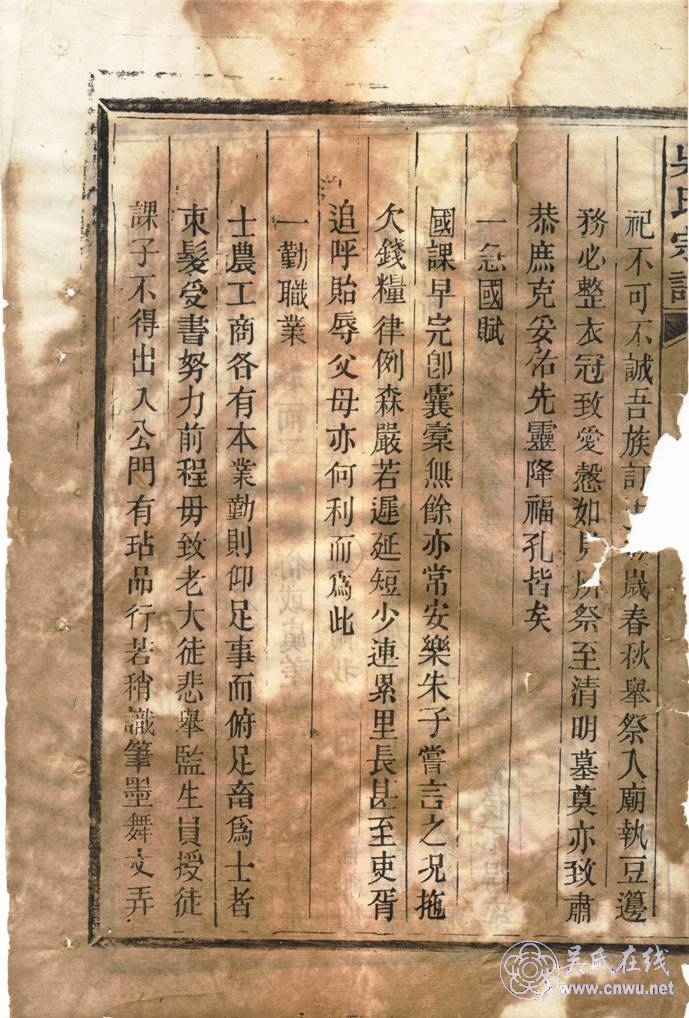 吳氏宗譜
祀不可不誠吾族訂歲春秋舉祭入廟執豆籩
務必整衣冠致愛慤如見所祭至清明墓奠亦致肅
恭庶克妥佑先靈降福孔皆矣
一急國賦
國課早完卽囊橐無餘亦常安樂朱子嘗言之况拖
欠錢糧律例森嚴若遲延短少連累里長甚至吏胥
追呼貽辱父母亦何利而爲此
一勤職業
士農工商各有本業勤則仰足事而俯足畜爲士者
束髮受書努力前程毋致老大徒悲舉監生員授徒
課子不得出入公門有玷品行若稍識筆墨舞文弄
吴氏在线
www.cnwu.net